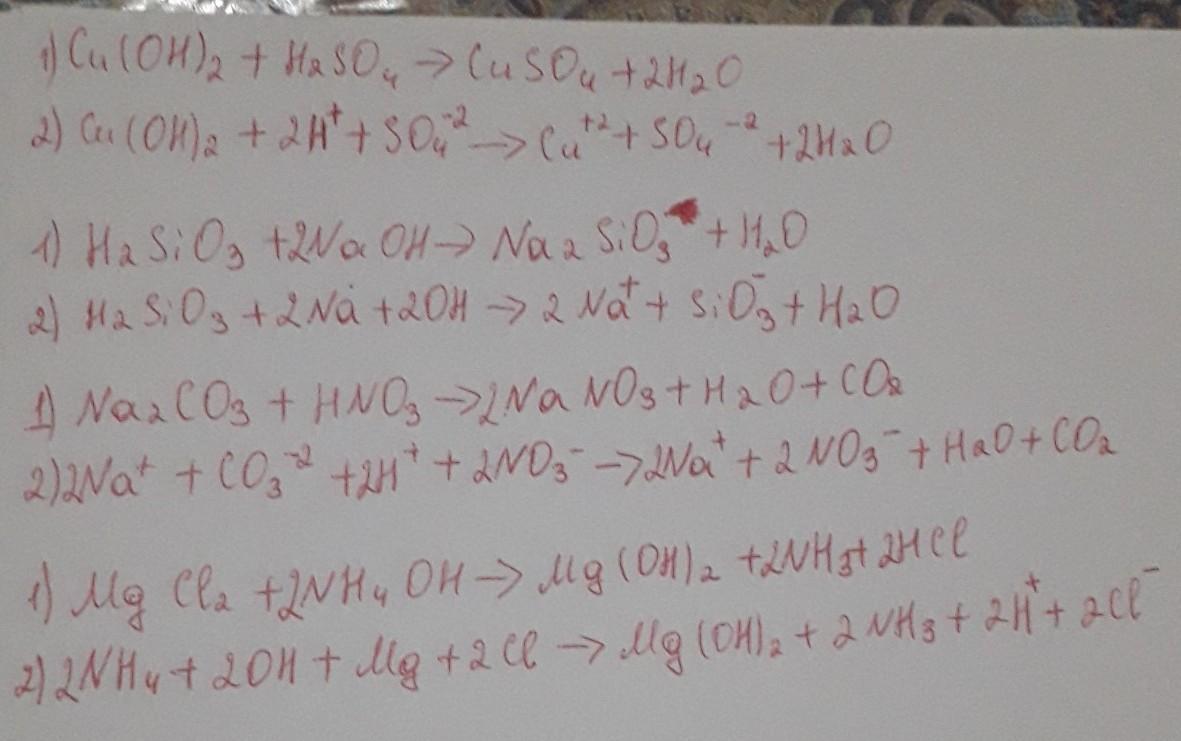 1) Cu(OH)₂ + H₂SO₄ → CuSO₄ + 2H₂O
2) Cu(OH)₂ + 2H⁺ + SO₄⁻² → Cu⁺² + SO₄⁻² + 2H₂O
1) H₂SiO₃ + 2NaOH → Na₂SiO₃ + H₂O
2) H₂SiO₃ + 2Na + 2OH → 2Na⁺ + SiO₃⁻ + H₂O
1) Na₂CO₃ + HNO₃ → 2NaNO₃ + H₂O + CO₂
2) 2Na⁺ + CO₃⁻² + 2H⁺ + 2NO₃⁻ → 2Na⁺ + 2NO₃⁻ + H₂O + CO₂
1) MgCl₂ + 2NH₄OH → Mg(OH)₂ + 2NH₃ + 2HCl
2) 2NH₄ + 2OH + Mg + 2Cl → Mg(OH)₂ + 2NH₃ + 2H⁺ + 2Cl⁻